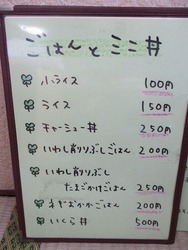 ごはんとミニ丼
小ライス 100円
ライス 150円
チャーシュー丼 250円
いわし削りぶしごはん 200円
いわし削りぶし
たまごかけごはん 250円
ねぎおかかごはん 200円
いくら丼 500円